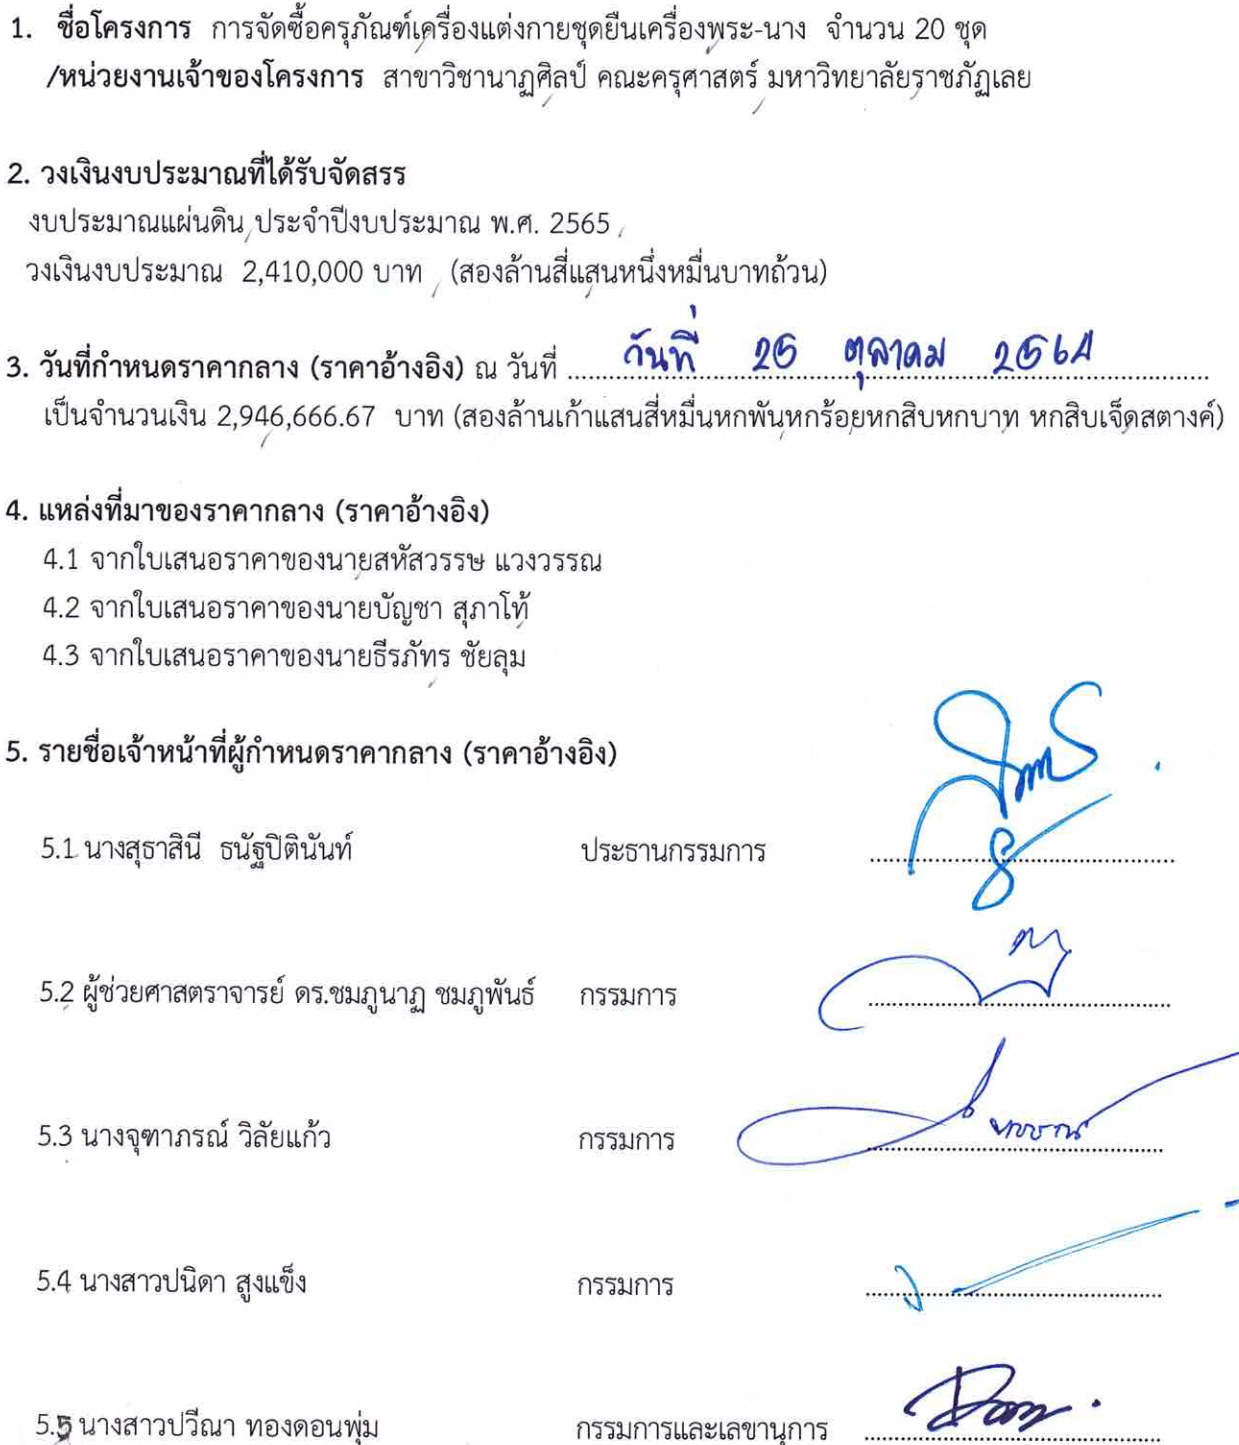 1. ชื่อโครงการ การจัดซื้อครุภัณฑ์เครื่องแต่งกายชุดยืนเครื่องพระ-นาง จำนวน 20 ชุด
/หน่วยงานเจ้าของโครงการ สาขาวิชานาฏศิลป์ คณะครุศาสตร์ มหาวิทยาลัยราชภัฏเลย
2. วงเงินงบประมาณที่ได้รับจัดสรร
งบประมาณแผ่นดิน ประจำปีงบประมาณ พ.ศ. 2565
วงเงินงบประมาณ 2,410,000 บาท (สองล้านสี่แสนหนึ่งหมื่นบาทถ้วน)
3. วันที่กำหนดราคากลาง (ราคาอ้างอิง) ณ วันที่ วันที่ 25 ตุลาคม 2564
เป็นจำนวนเงิน 2,946,666.67 บาท (สองล้านเก้าแสนสี่หมื่นหกพันหกร้อยหกสิบหกบาท หกสิบเจ็ดสตางค์)
4. แหล่งที่มาของราคากลาง (ราคาอ้างอิง)
4.1 จากใบเสนอราคาของนายสหัสวรรษ แวงวรรณ
4.2 จากใบเสนอราคาของนายบัญชา สุภาโท้
4.3 จากใบเสนอราคาของนายธีรภัทร ชัยลุม
5. รายชื่อเจ้าหน้าที่ผู้กำหนดราคากลาง (ราคาอ้างอิง)
5.1 นางสุธาสินี ธนัฐปิตินันท์ ประธานกรรมการ
5.2 ผู้ช่วยศาสตราจารย์ ดร.ชมภูนาฏ ชมภูพันธ์ กรรมการ
5.3 นางจุฑาภรณ์ วิลัยแก้ว กรรมการ
5.4 นางสาวปนิดา สูงแข็ง กรรมการ
5.5 นางสาวปวีณา ทองดอนพุ่ม กรรมการและเลขานุการ